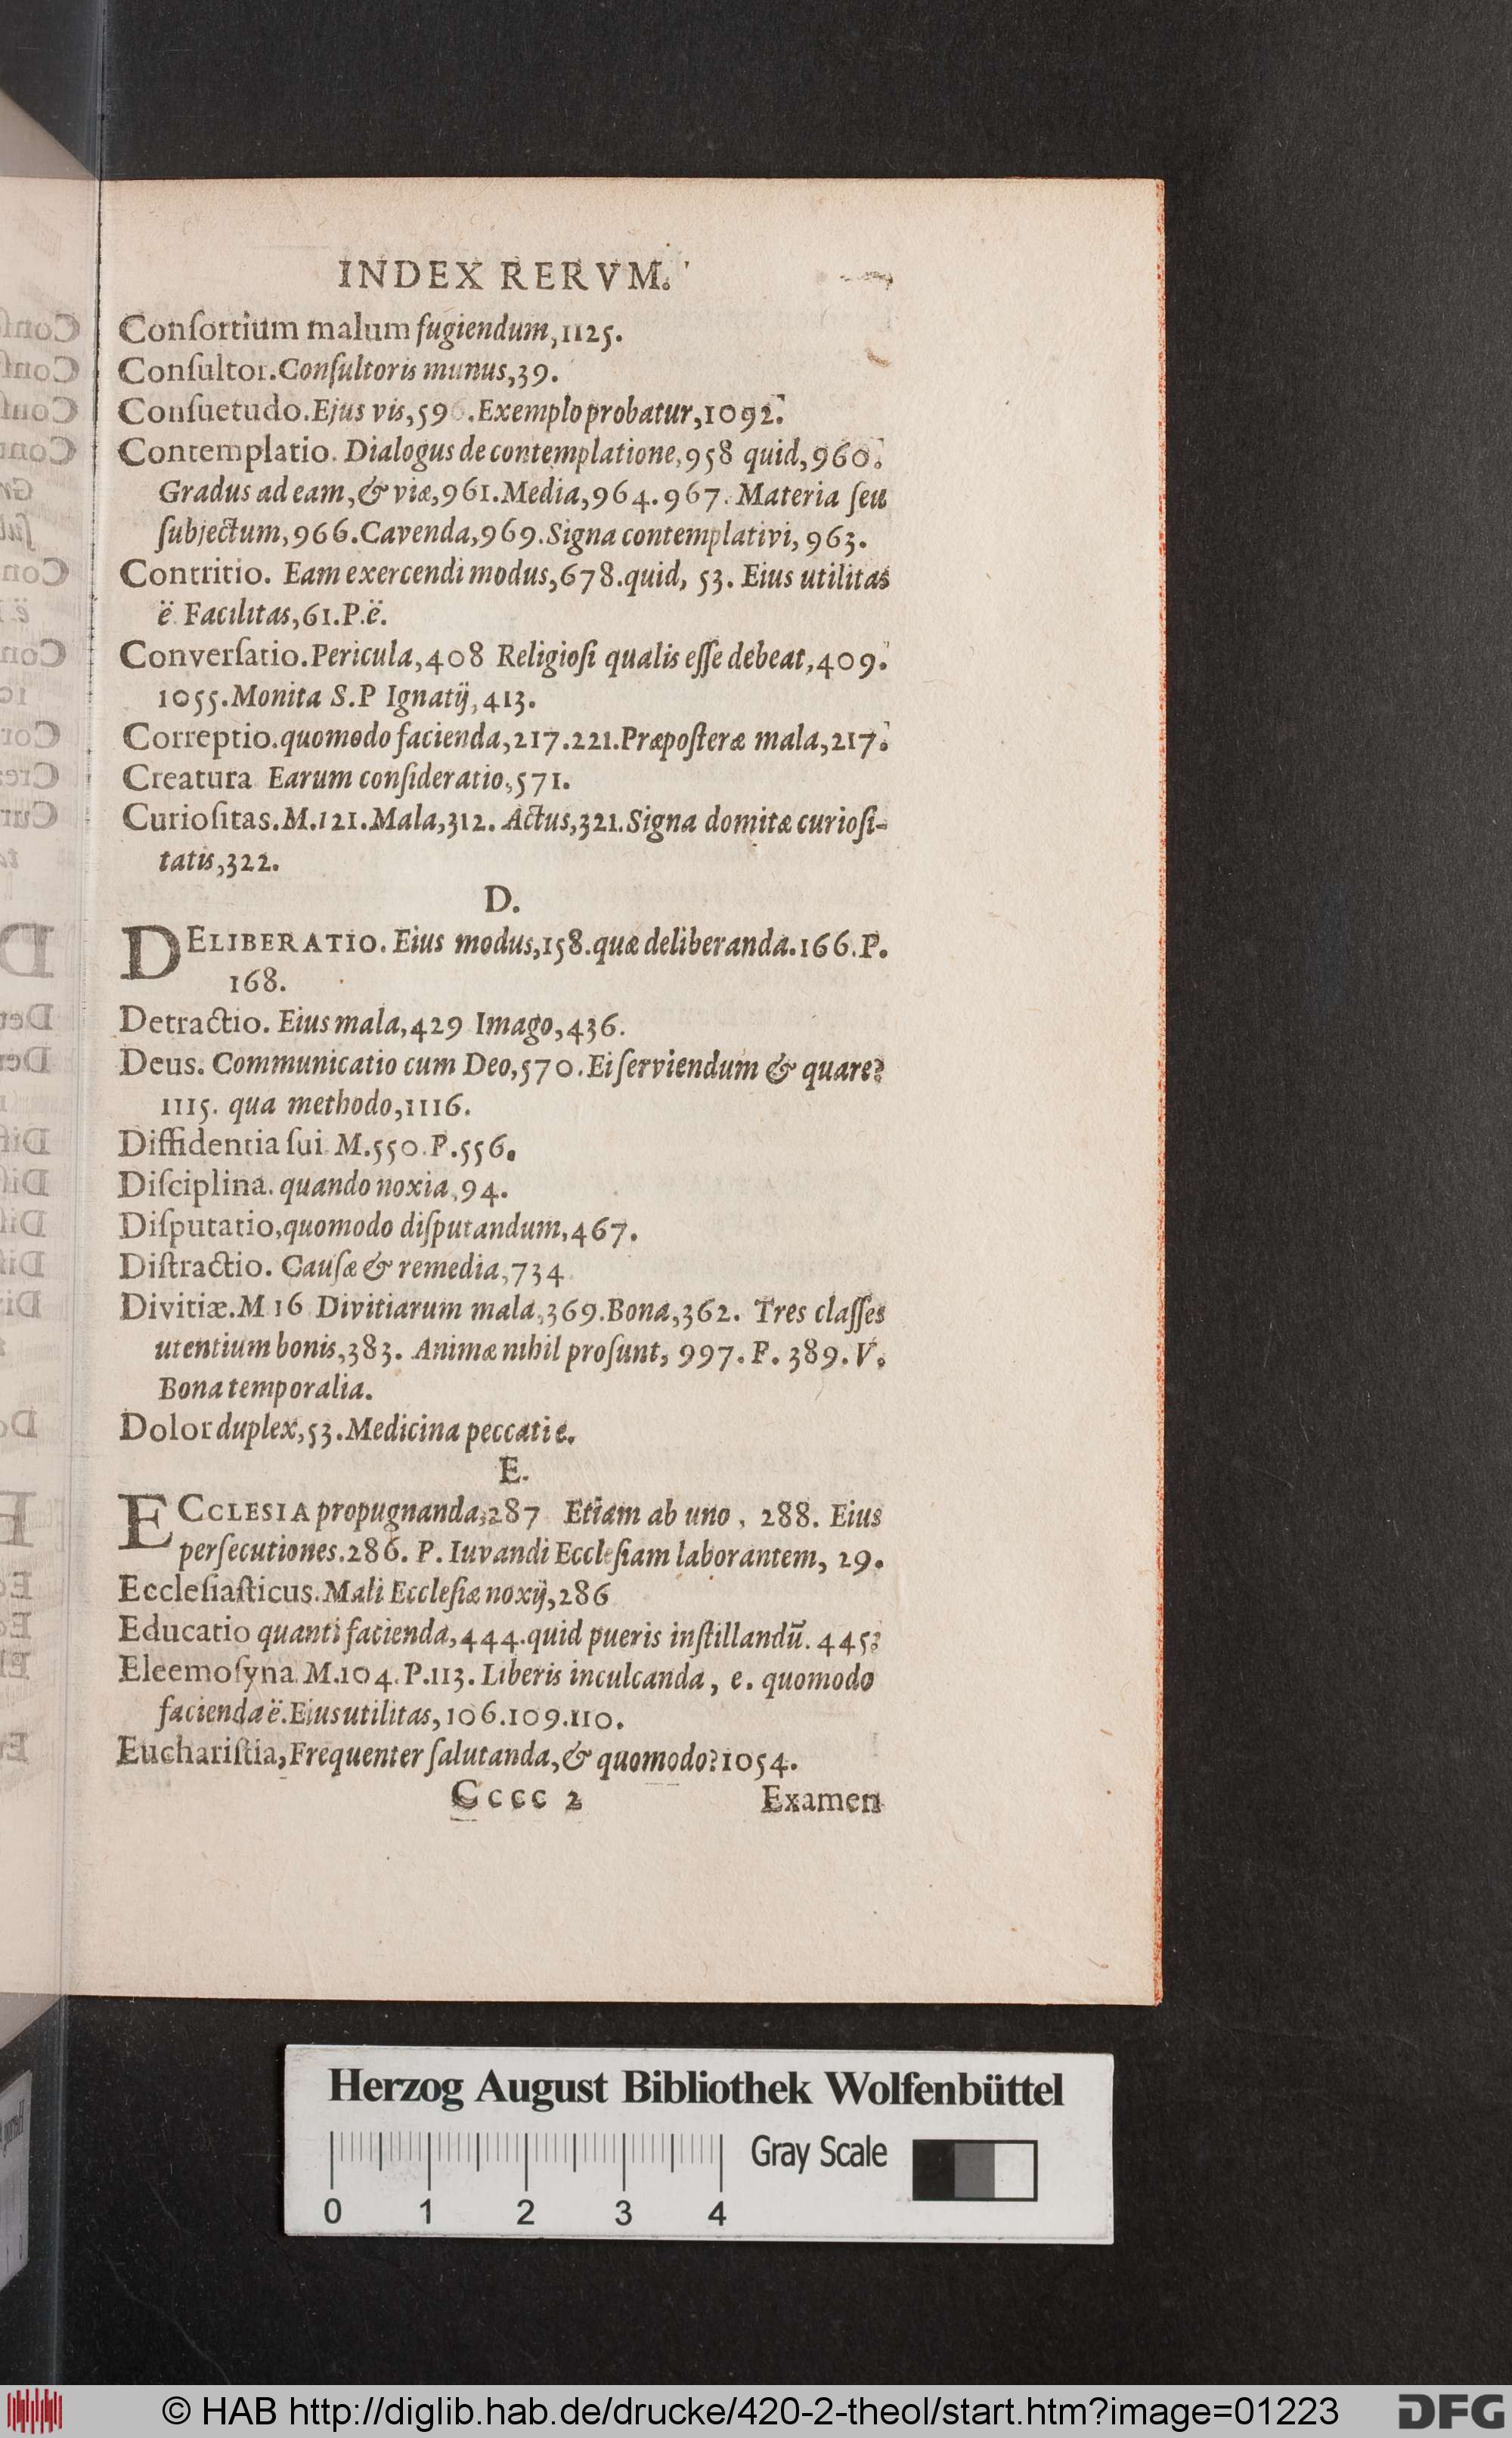 INDEX RERVM.
Conſortium malum fugiendum,1125.
Conſultor.Conſultoris munus,39.
Conſuetudo.Ejus vis,596.Exemplo probatur,1092.
Contemplatio. Dialogus de contemplatione,958 quid,960.
Gradus ad eam,& viæ,961.Media,964.967.Materia ſeu
ſubjectum,966.Cavenda,969.Signa contemplativi,963.
Contritio. Eam exercendi modus,678.quid, 53. Eius utilitas
ë. Facilitas,61.P.ë.
Converſatio.Pericula,408 Religioſi qualis eſſe debeat,409.
1055.Monita S.P Ignatij,413.
Correptio.quomodo facienda,217.221.Præpoſteræ mala,217.
Creatura Earum conſideratio,571.
Curioſitas.M.121.Mala,312. Actus,321.Signa domitæ curioſi-
tatis,322.
D.
DELIBERATIO. Eius modus,158.quæ deliberanda.166.P.
168.
Detractio. Eius mala,429 Imago,436.
Deus. Communicatio cum Deo,570.Ei ſerviendum & quare?
1115. qua methodo,1116.
Diffidentia ſui. M.550.P.556.
Diſciplina. quando noxia,94.
Diſputatio,quomodo diſputandum,467.
Diſtractio. Cauſæ & remedia,734
Divitiæ.M 16 Divitiarum mala,369.Bona,362. Tres claſſes
utentium bonis,383. Animæ nihil proſunt, 997. P. 389. V.
Bona temporalia.
Dolor duplex,53.Medicina peccati e.
E.
ECCLESIA propugnanda,287 Etiam ab uno, 288. Eius
perſecutiones.286. P. Iuvandi Eccleſiam laborantem, 29.
Eccleſiaſticus.Mali Eccleſiæ noxij,286
Educatio quanti facienda,444.quid pueris inſtillandū. 445.
Eleemoſyna.M.104.P.113.Liberis inculcanda, e. quomodo
facienda ë.Eius utilitas,106.109.110.
Euchariſtia,Frequenter ſalutanda,& quomodo?1054.
Cccc 2 Examen
Herzog August Bibliothek Wolfenbüttel
Gray Scale
0 1 2 3 4
© HAB http://diglib.hab.de/drucke/420-2-theol/start.htm?image=01223 DFG